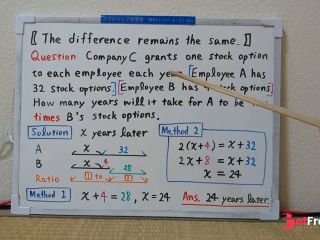 〖 The difference remains the same. 〗
Question Company C grants one stock option
to each employee each year. [Employee A has
32 stock options] [Employee B has 4 stock options].
How many years will it take for A to be
times B's stock options.
Solution x years later
A x 32
B x 4 28
Ratio 1 to 1
Method 1 x + 4 = 28, x = 24
Method 2
2(x+4) = x+32
2x+8 = x+32
x = 24
Ans. 24 years later.